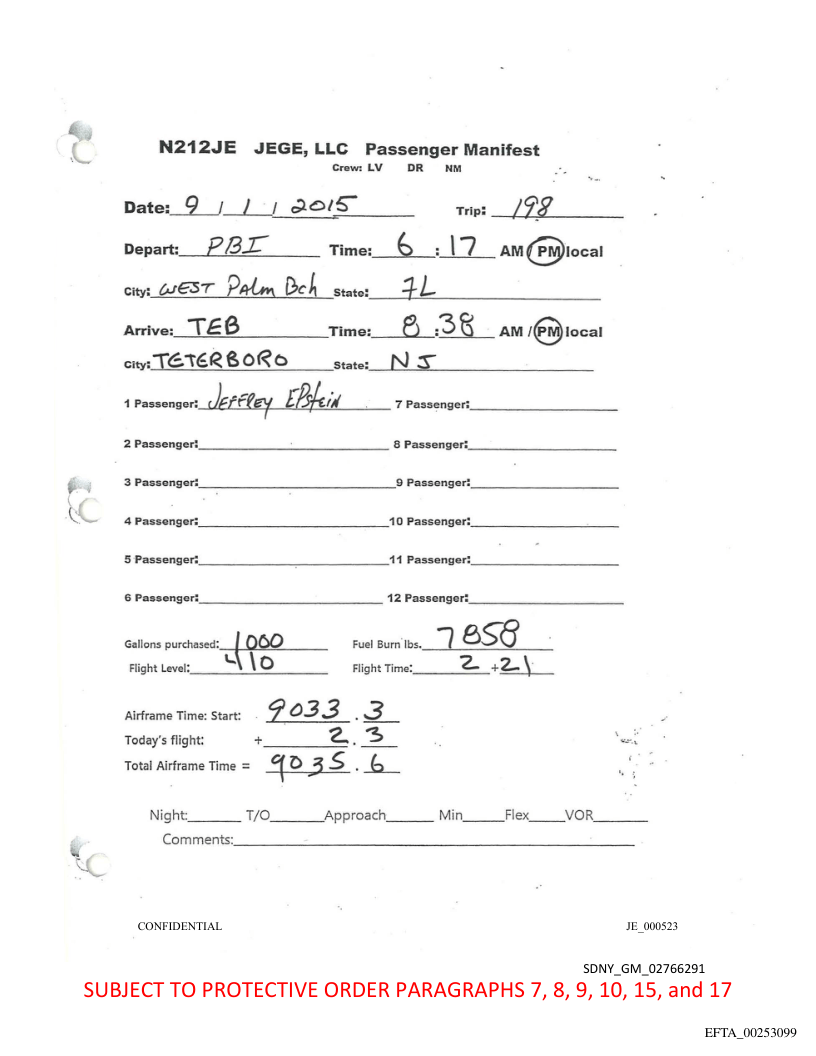 N212JE JEGE, LLC Passenger Manifest
Crew: LV DR NM
Date: 9 / 1 / 2015 Trip: 198
Depart: PBI Time: 6 : 17 AM / PM local
City: WEST Palm Bch State: FL
Arrive: TEB Time: 8 : 38 AM / PM local
City: TETERBORO State: NJ
1 Passenger: JEFFREY EPstEiN 7 Passenger:
2 Passenger: 8 Passenger:
3 Passenger: 9 Passenger:
4 Passenger: 10 Passenger:
5 Passenger: 11 Passenger:
6 Passenger: 12 Passenger:
Gallons purchased: 1000 Fuel Burn lbs. 7858
Flight Level: 410 Flight Time: 2 + 21
Airframe Time: Start: 9033 . 3
Today's flight: + 2 . 3
Total Airframe Time = 9035 . 6
Night: T/O Approach Min Flex VOR
Comments:
CONFIDENTIAL JE_000523
SDNY_GM_02766291
SUBJECT TO PROTECTIVE ORDER PARAGRAPHS 7, 8, 9, 10, 15, and 17
EFTA_00253099